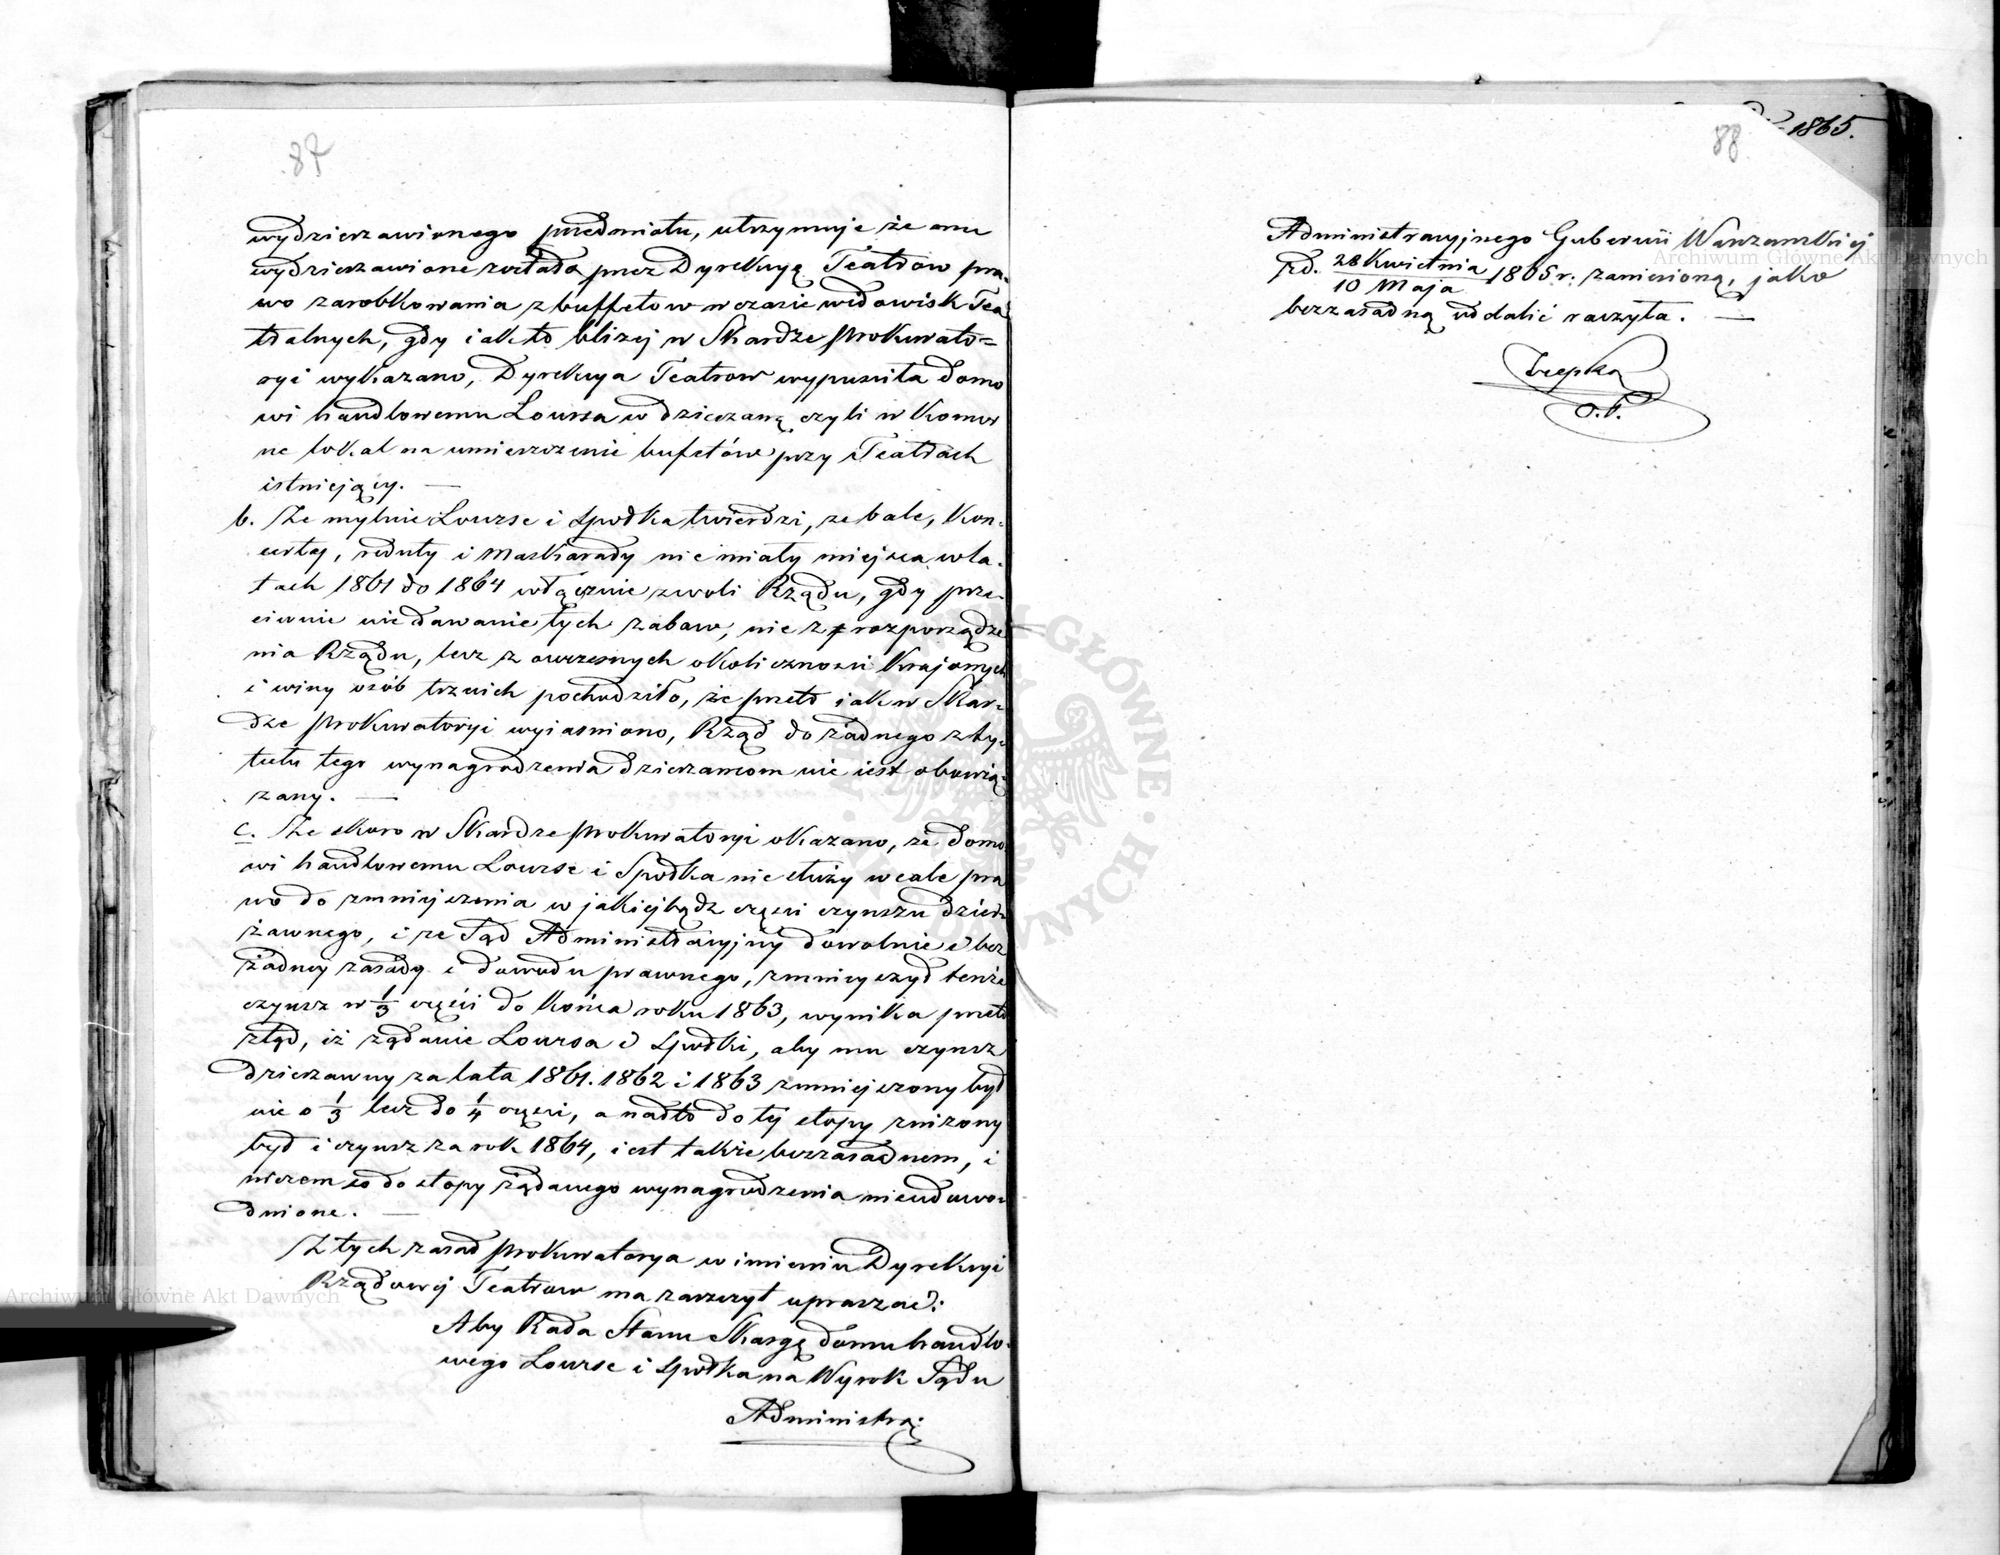 87
wydzierzawionego przedmiotu, utrzymuje że onu
wydzierzawione zostało przez Dyrekcyą Teatrow pra-
wo zarobkowania z buffetow w czasie widowisk Tea
tralnych, gdy iak to bliżej w Skardze Prokurato=
ryi wykazano, Dyrekcya Teatrow wypuściła domo
wi handlowemu Loursa w dzierzawę czyli w Komor
ne lokal na umieszczenie bufetów przy Teatrach
istniejący. —
b. Że mylnie Lourse i Spółka twierdzi, ze bale, Kon-
certa, reduty i Maskarady nie miały miejsca w la-
tach 1861 do 1864 włącznie z woli Rządu, gdy prze-
ciwnie nie dawanie tych zabaw, nie z rozporządze
nia Rządu, lecz z owczesnych okoliczności Krajowych
i winy osób trzecich pochodziło, że przeto iak w Skar-
dze Prokuratoryi wyiaśniono, Rząd do żadnego z ty-
tułu tego wynagrodzenia dzierzawcom nie iest obowią-
zany. —
c. Że skoro w Skardze Prokuratoryi okazano, że domo
wi handlowemu Lourse i Spółka nie służy wcale pra
wo do zmniejszenia w jakiejbądź części czynszu dzier-
żawnego, i że Sąd Administracyjny dowolnie i bez
żadnej zasady i dowodu prawnego, zmniejszył tenże
czynsz w 1/3 części do Końca roku 1863, wynika przeto
ztąd, iż żądanie Loursa i Spółki, aby mu czynsz
dzierzawny za lata 1861. 1862 i 1863 zmniejszony był
nie o 1/3 lecz do 1/4 części, a nadto do tej stopy zniżony
był i czynsz za rok 1864, iest także bezzasadnem, i
niczem co do stopy żądanego wynagrodzenia nieudowo-
dnione. —
Z tych zasad Prokuratorya w imieniu Dyrekcyi
Rządowej Teatrow ma zaszczyt upraszać:
Aby Rada Stanu Skargę domu handlo-
wego Lourse i Spółka na Wyrok Sądu
Administra:
1865.
88
Administracyjnego Gubernii Warszawskiej
z d. 28 Kwietnia / 10 Maja 1865 r: zaniesioną, jako
bezzasadną oddalić raczyła. —
Archiwum Główne Akt Dawnych
Archiwum Główne Akt Dawnych